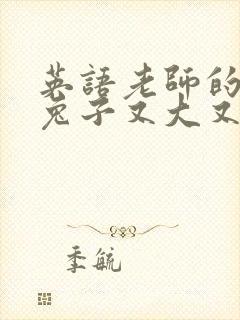 英語老師的
兔子又大又
季毓